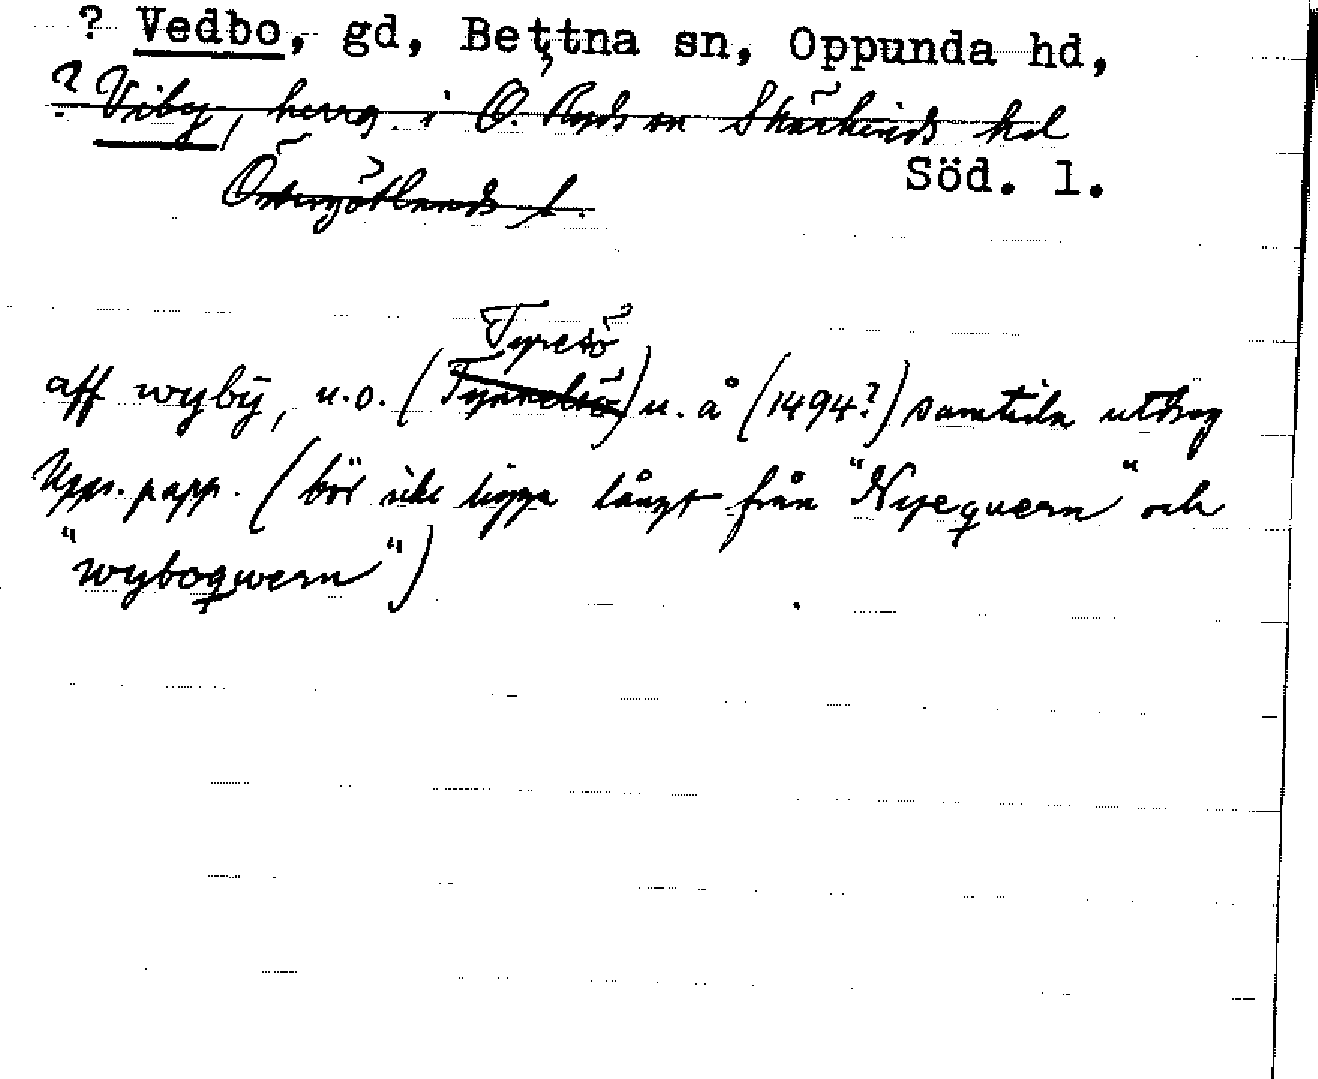 ? Vedbo, gd, Bettna sn, Oppunda hd,
? Viby, herrg. i Ö. Ryds sn Skärkinds hd
Söd. l.
Östergötlands l.
Tyresö
aff wybÿ, u.o. (Tyrelsö) u. å (1494?) samtida utdrag
Upps. papp. (bör icke ligga långt från "Nyequern" och
"wyboqwern")